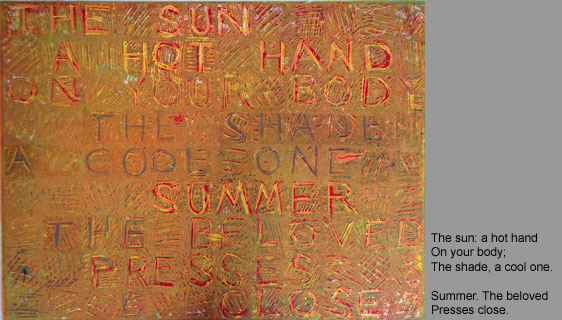 THE SUN
A HOT HAND
ON YOUR BODY
THE SHADE
A COOL ONE
SUMMER
THE BELOVED
PRESSES
CLOSE
The sun: a hot hand
On your body;
The shade, a cool one.
Summer. The beloved
Presses close.